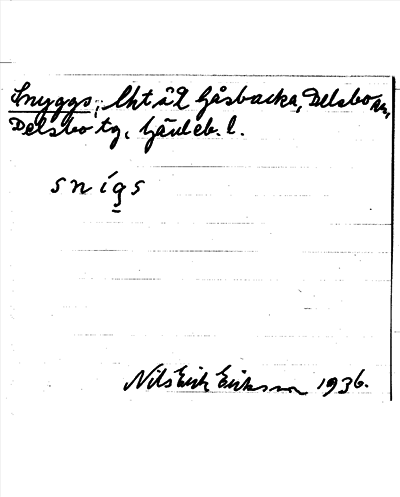 Snyggs, lht å 2 Gåsbacka, Delsbo sn,
Delsbo tg, Gävleb. l.
snígs
Nils Erik Eriksson 1936.